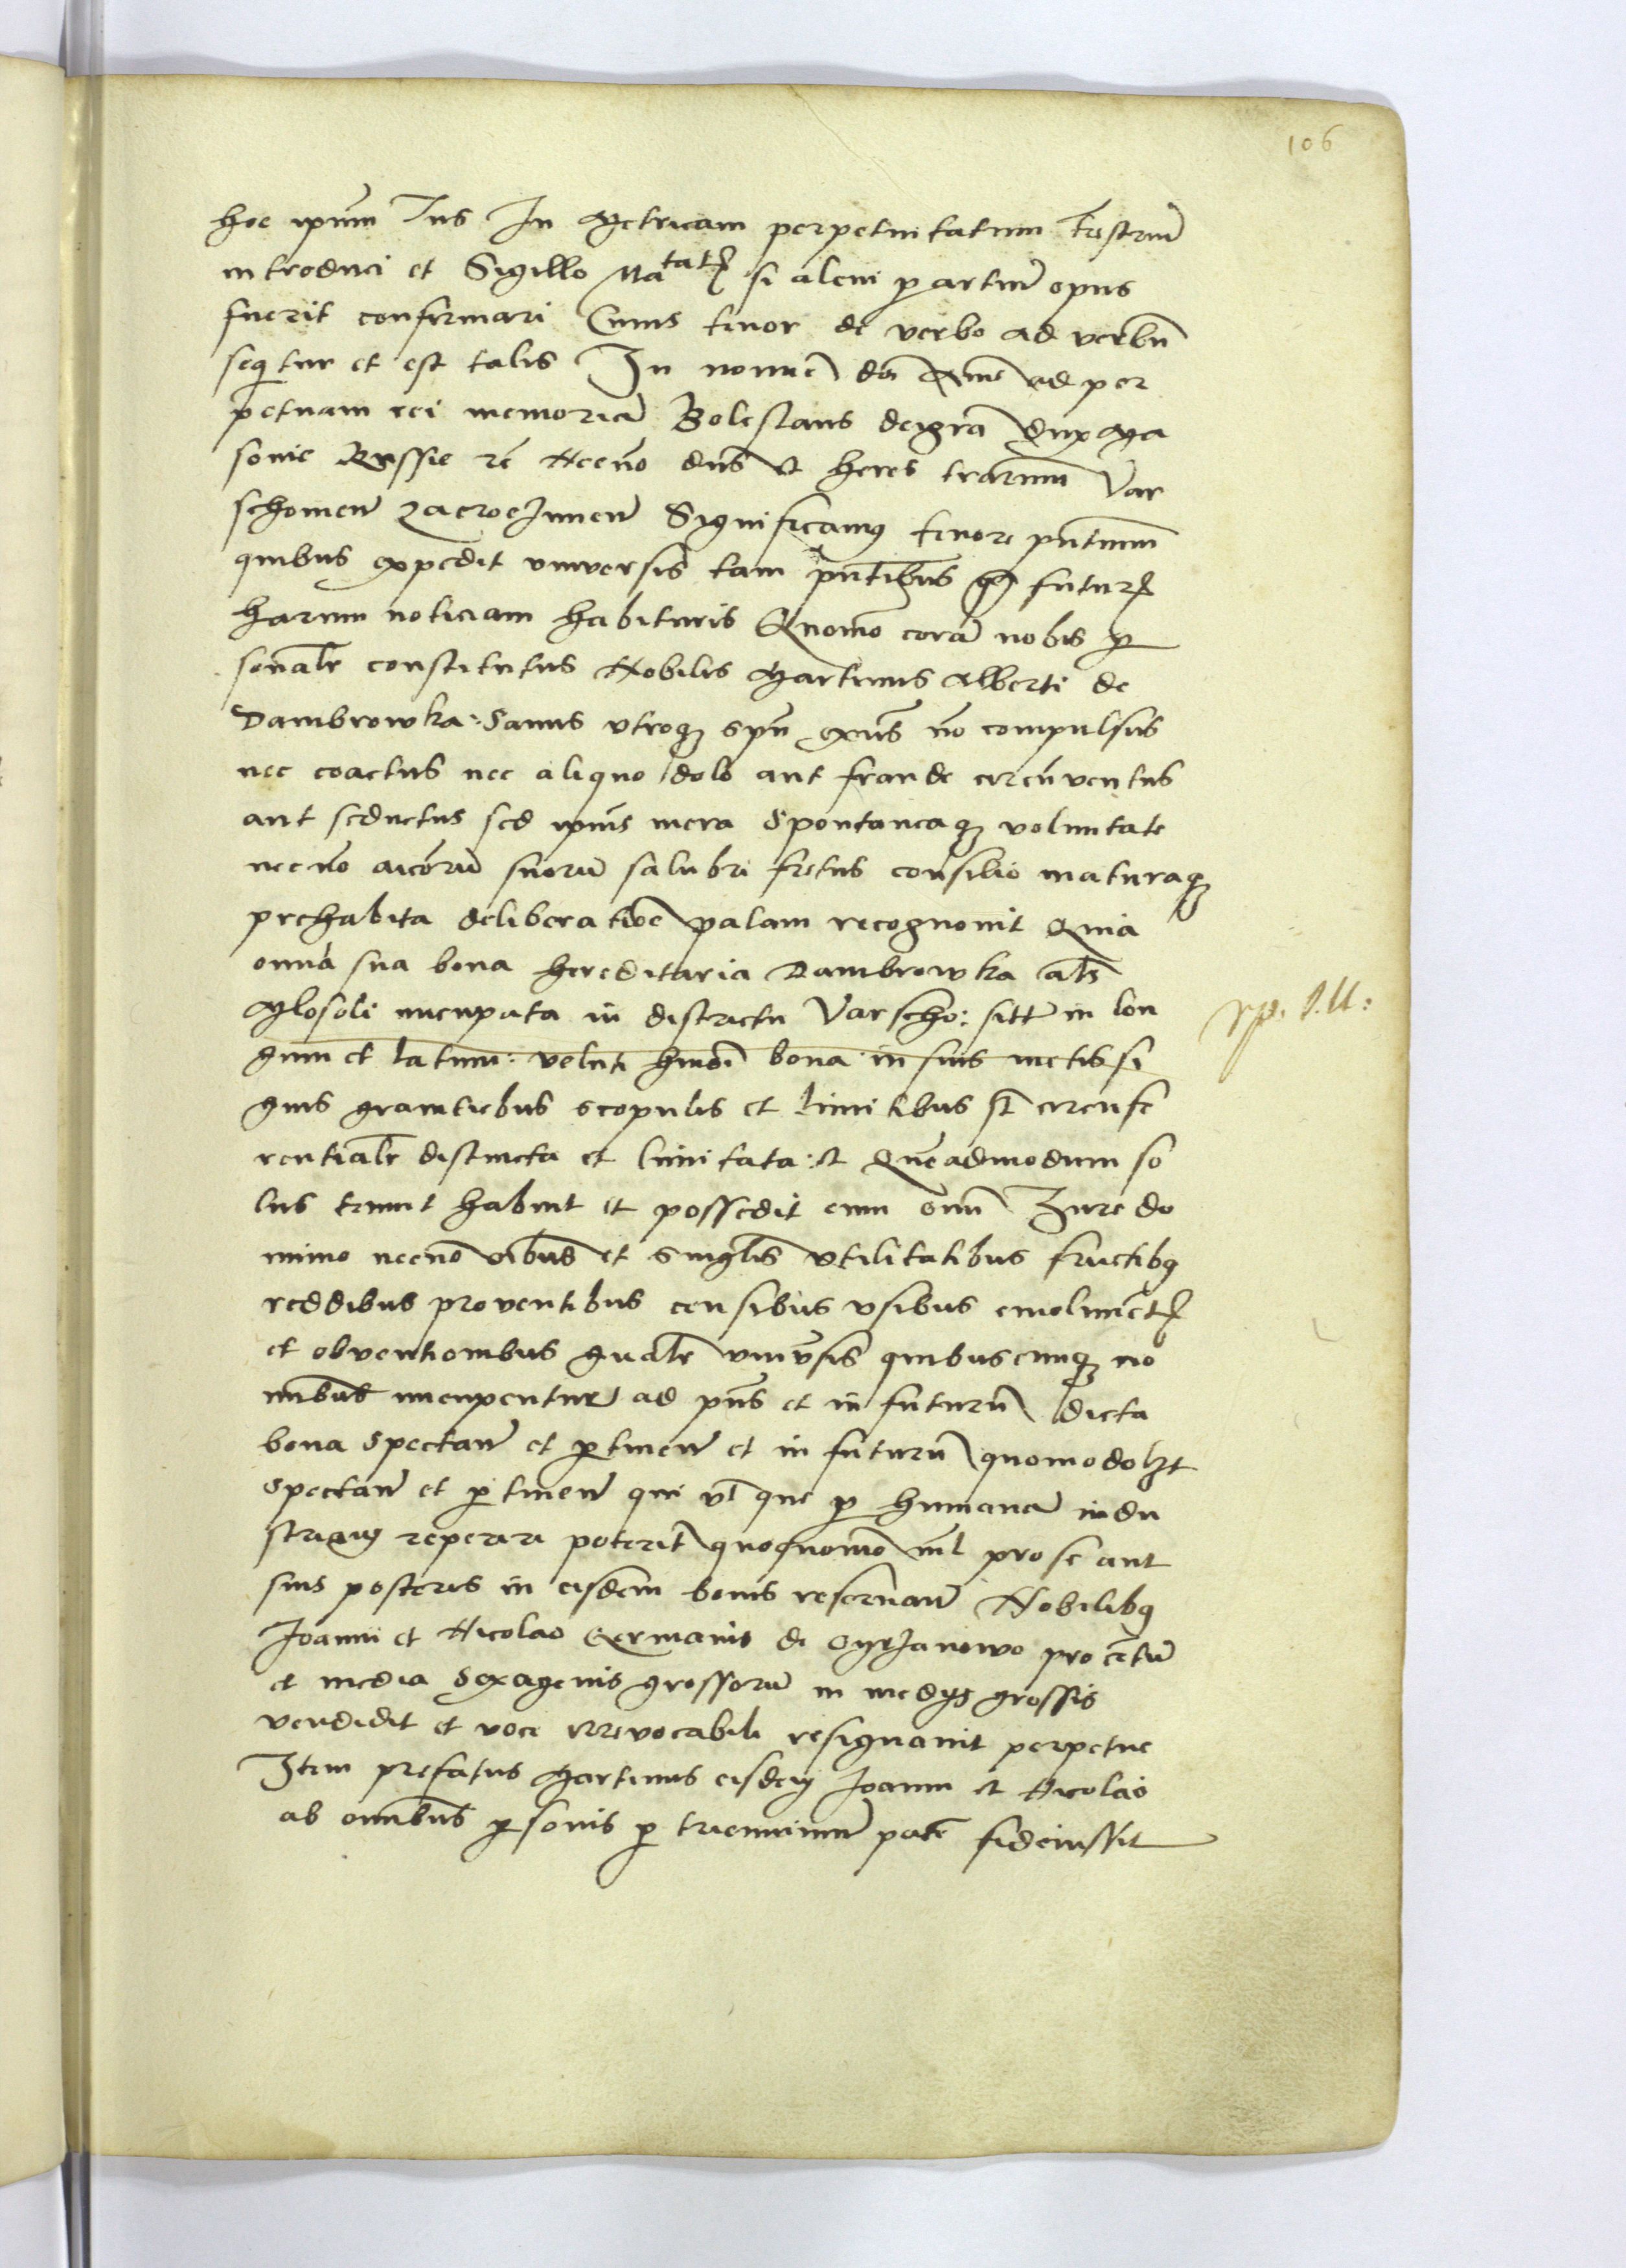 106
hoc ipm̄ Ius In Metricam perpetuitatum Trestrūm
introduci et Sigillo Matatꝭ si alcui partiū opus
fuerit confirmari Cuius tenor de verbo ad verbū
sequitur et est talis In nomine dn̄i Ame͂ ad per
petuam rei memoria͂ Boleslaus dei gra͂ Dux Ma
sovie Russie rc͂ Necno͂ dn͂s et heres trarum Var
schouien͂ Zacroczimen͂ Significamꝰ tenore pn͂tium
quibus expedit vniuersis tam pn͂tibus qͣ͂ futurꝭ
harum noticiam habituris Quomo͂ cora͂ nobis ꝑ
sonalr͂ constitutus Nobilis Martinus Alberti de
Dambrowka: Sanus vtroqꝫ spn͂ exn͂s no͂ compulsus
nec coactus nec aliquo dolo aut fraude circu͂uentus
aut seductus sed ipius mera Spontaneaqꝫ voluntate
necno͂ aicoru͂ suoru͂ salubri fretus consilio maturaqꝫ
prehabita deliberatio͂e palam recognouit Quia
omnia sua bona hereditaria Dambrowka als͂
Mlosoli nuncupata in districtu Varscho: sitt͂ in lon
gum et latum: veluti hmo͂i bona in suis metis si
gnis graniciebus scopulis et limitibus st͂ circu͂fe
rentialr͂ distincta et limitata: et Que͂admodum so
lus tenuit habuit et possedit cum om͂i Iure do
minio necno͂ oi͂bus et singlis͂ vtilitatibus fructibꝰ
reddibus prouentibus censibus vsibus emolume͂tꝭ
et obuentionibus gn͂alr͂ vniu͂sis quibuscunqꝫ no
minibus nuncupentur ad pn͂s et in futuru͂ dicta
bona spectan͂ et ꝑtinen͂ et in futuru͂ quomodolꝫt
spectan͂ et ꝑtinen͂ qui vl͂ que ꝑ humana͂ indu
striam reperiri poterit quoquomo͂ nil͂ pro se aut
suis posteris in eisdem bonis reseruan͂ Nobilibꝰ
Joanni et Nicolao Germanis de pro ce͂tum
et media sexagenis grossoru͂ in medijs grossis
vendidit et voce irreuocabili resignauit perpetue
Item prefatus Martinus eisdem Joanni et Nicolao
ab omnibus ꝑsonis ꝑ trienniuum͂ pate͂ fideiussit